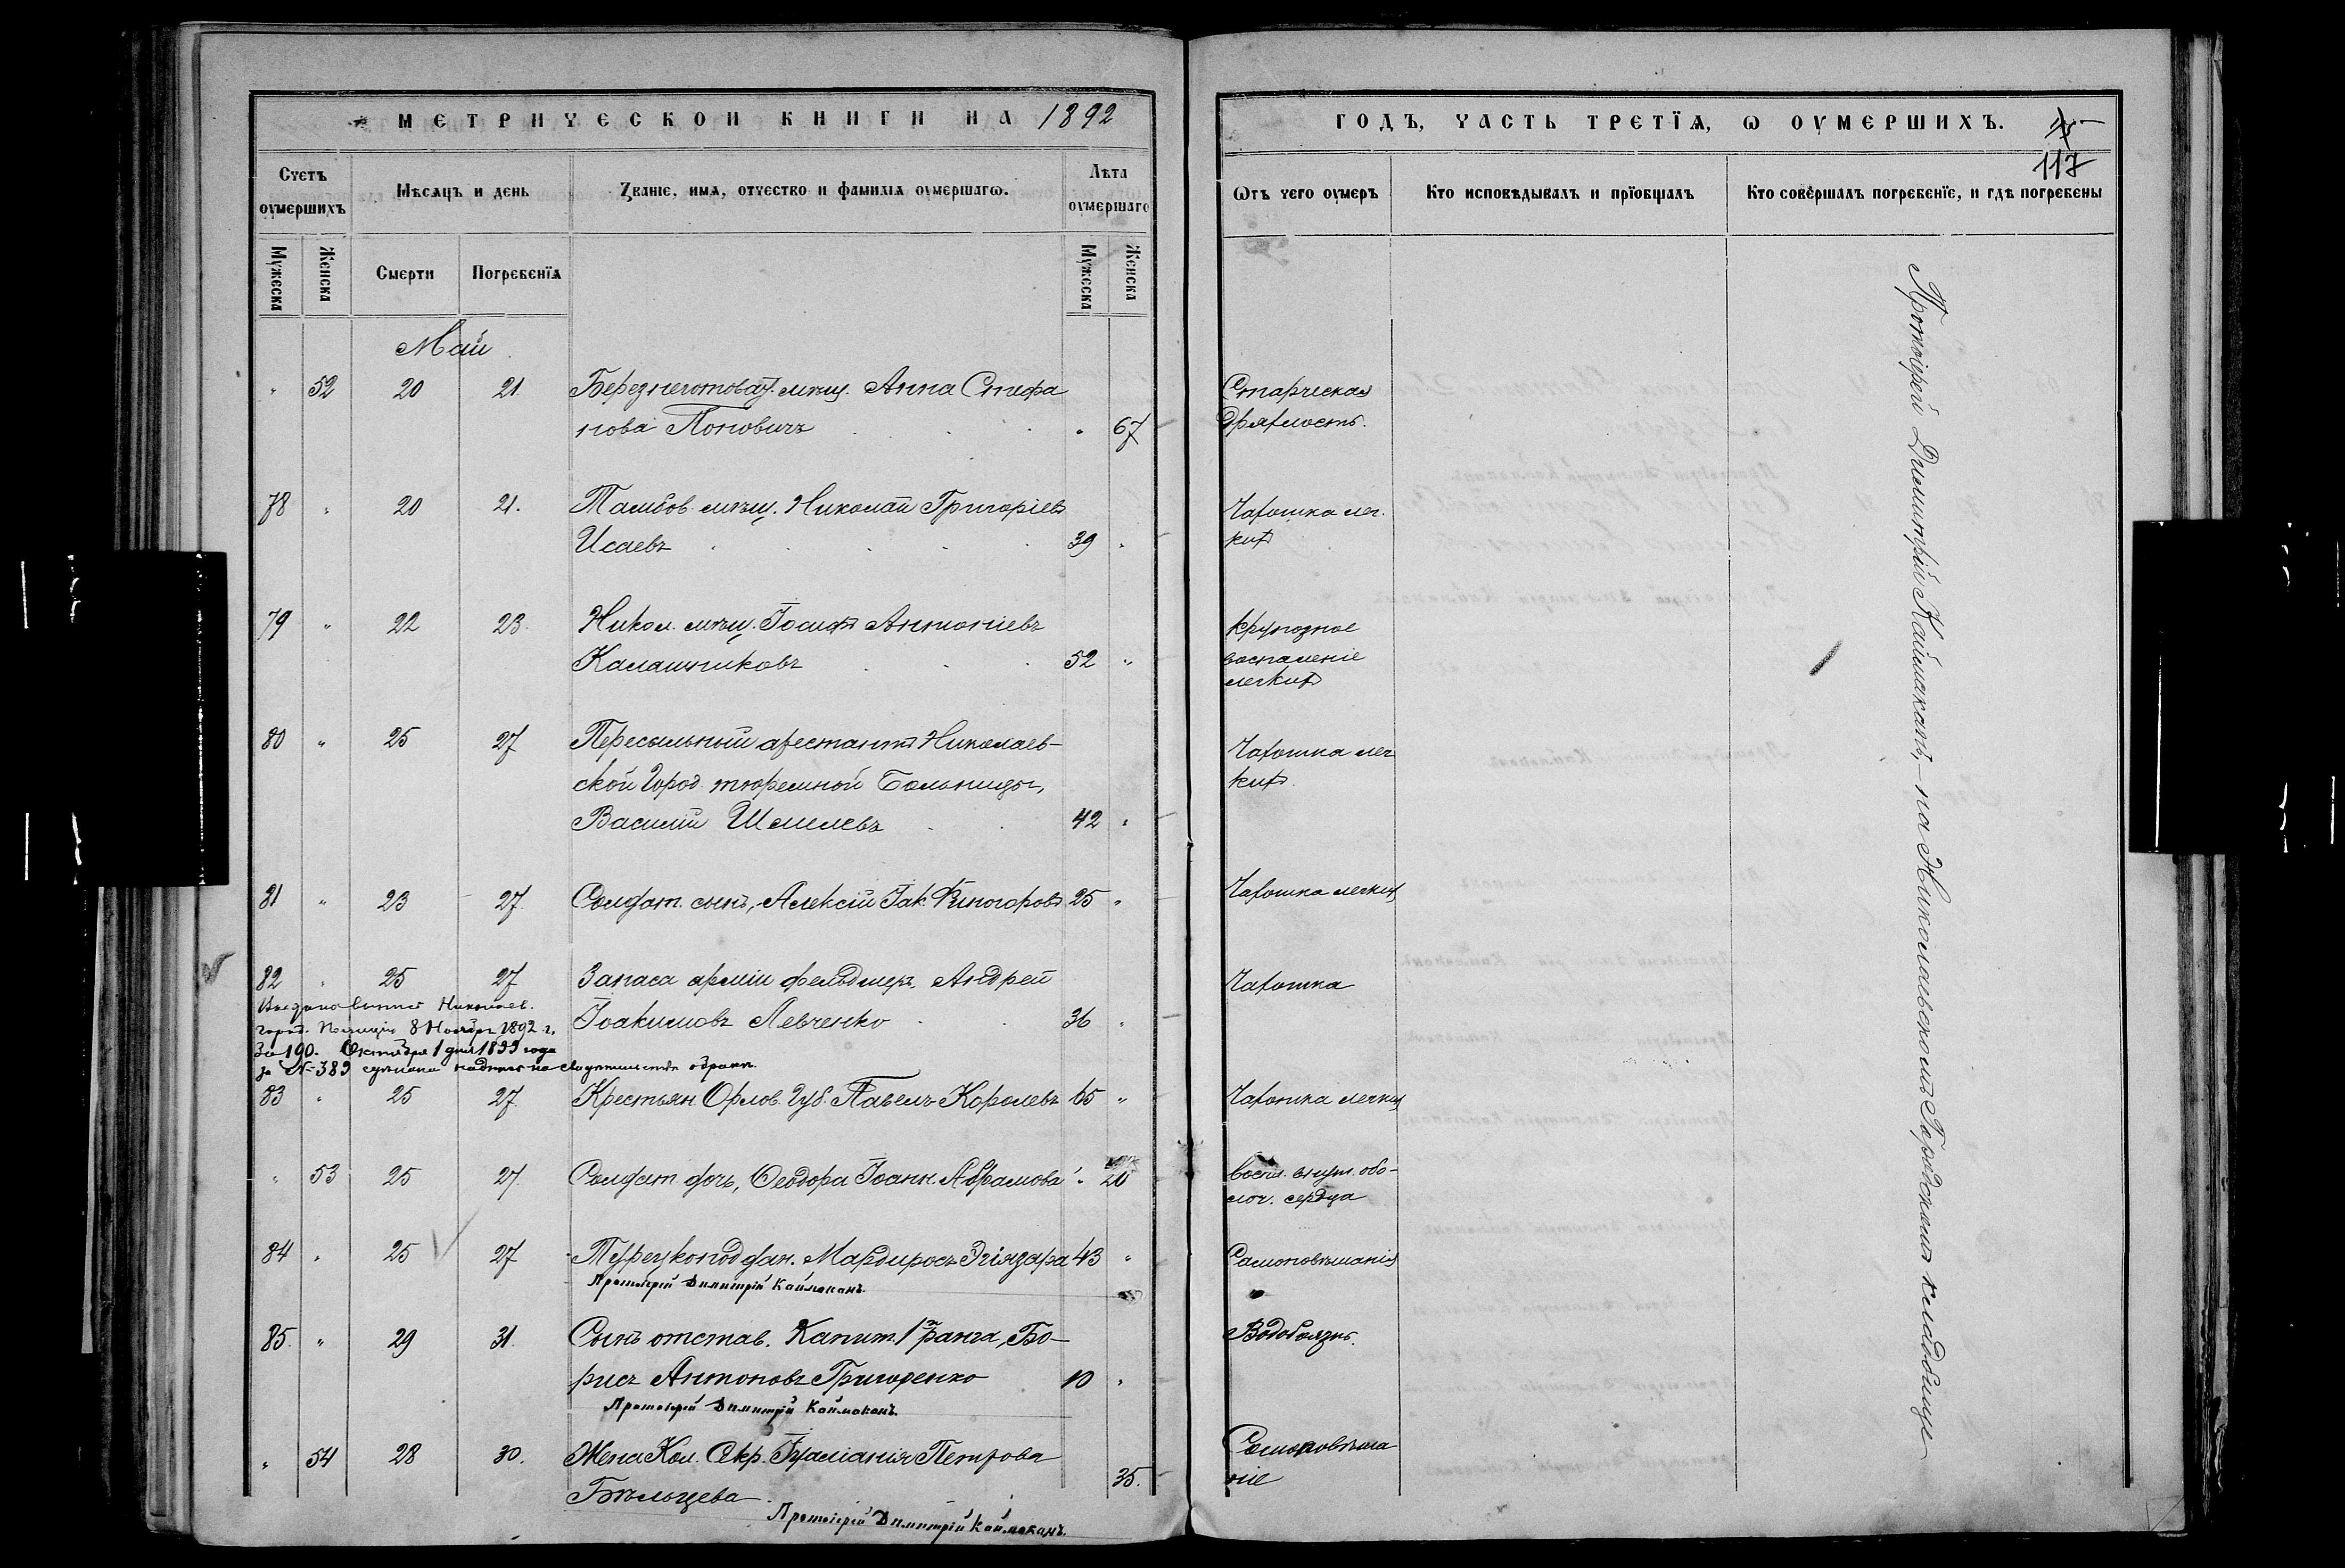 МЕТРИЧЕСКОЙ КНИГИ НА 1892
Счетъ оумершихъ
Мѣсяцъ и день
Званіе, имя, отчество и фамилія оумершагω.
Лѣта оумершаго
Мужеска Женска Смерти Погребенїя Мужеска Женска
Май
" 52 20 21 Березнеговат. мѣщ. Анна Стефа
нова Поповичъ " 67
78 " 20 21. Тамбов. мѣщ. Николай Григоріевъ
Исаевъ 39 "
79 " 22 23 Никол. мѣщ. Іосифъ Антоніевъ
Калашниковъ 52 "
80 " 25 27 Пересыльный арестантъ Николаев-
ской Город. тюремной Больницы,
Василій Шмелевъ 42 "
81 " 23 27 Солдат. сынъ, Алексій Іак. 25 "
82 " 25 27 Запаса арміи фельдшеръ Андрей
Іоакимовъ Левченко 36 "
Николаев.
город. Полиціи 8 Ноября 1892 г.
За 190. Октября 1 дня 1899 года
за № 389 сдѣлана надпись на свидѣтельствѣ о бракѣ.
83 " 25 27 Крестьян. Орлов. Губ. Павелъ Королевъ 65 "
" 53 25 27 Солдат. дочь, Ѳеодора Іоанн. Абрамова " 20
84 " 25 27 Турецкоподдан. Мардиросъ 43 "
Протоіерей Димитрій Каймаканъ.
85. " 29 31. Сынъ отстав. Капит. 1го ранга, Бо-
рисъ Антоновъ Григоренко 10 "
Протоіерей Димитрій Каймаканъ.
" 54 28 30. Жена Кол. Секр. Петрова
Бѣльцева 35.
Протоіерей Димитрій Каймаканъ.
ГОДЪ, ЧАСТЬ ТРЕТЇЯ, Ѡ ОУМЕРШИХЪ.
117
Ѡтъ чего оумеръ
Кто исповѣдывалъ и прїобщалъ
Кто совершалъ погребенїе, и гдѣ погребены
Старческая
дряхлость.
Чахотка лег.
кихъ
Крупозное
воспаленіе
легкихъ
Чахотка лег
кихъ.
Чахотка легких
Чахотка
Чахотка легких
Воспл. внутр. обо-
лоч. сердца
Самоповѣшанія
Водобоязнь.
Самоповѣша
ніе
Протоіерей Димитрій Каймаканъ, – на Николаевскомъ Городскомъ кладбищѣ